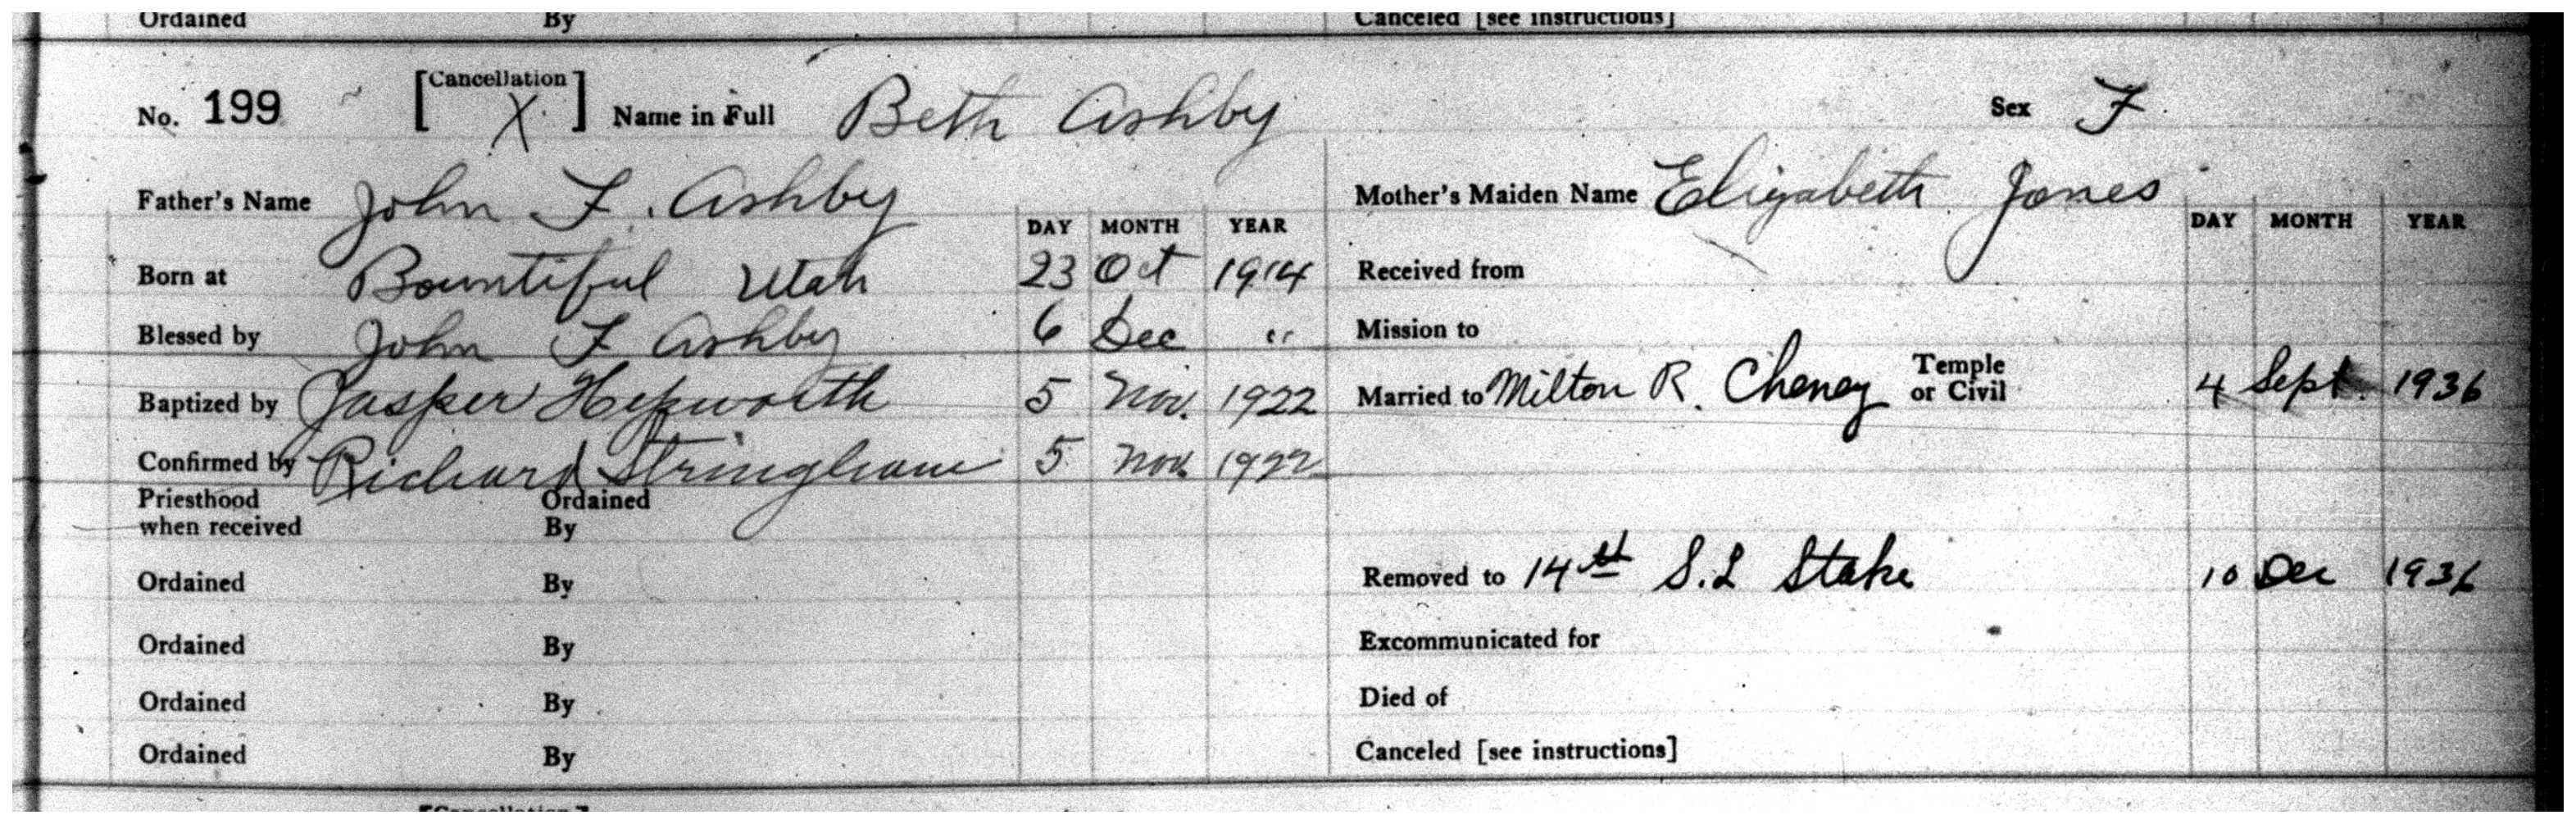 Ordained By Canceled [see instructions]
No. 199 [Cancellation X] Name in Full Beth Ashby Sex F
Father's Name John F. Ashby Mother's Maiden Name Elizabeth Jones
DAY MONTH YEAR DAY MONTH YEAR
Born at Bountiful Utah 23 Oct 1914 Received from
Blessed by John F Ashby 6 Dec " Mission to
Baptized by Jasper Hepworth 5 Nov. 1922 Married to Milton R. Cheney Temple or Civil 4 Sept. 1936
Confirmed by Richard Stringham 5 Nov. 1922
Priesthood when received Ordained By
Ordained By Removed to 14th S.L Stake 10 Dec 1936
Ordained By Excommunicated for
Ordained By Died of
Ordained By Canceled [see instructions]
[Cancellation]